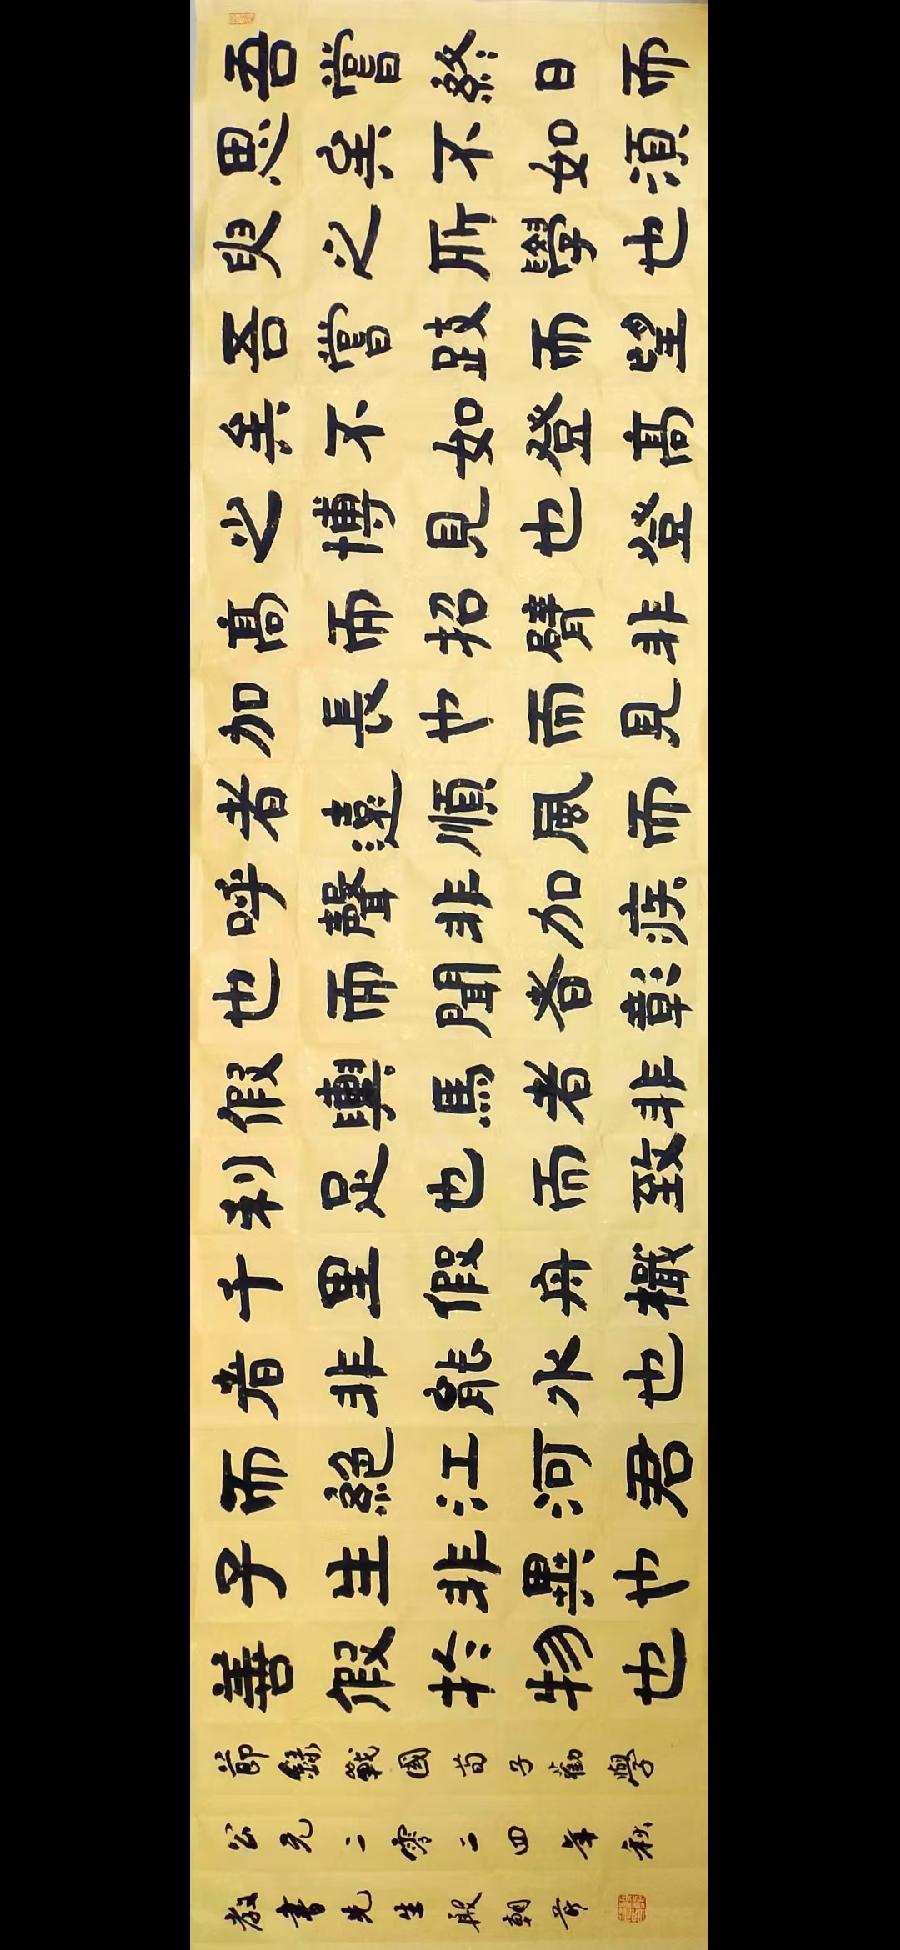 吾嘗終日而
思矣不如須
臾之所學也
吾嘗跂而望
矣不如登高
之博見也登
高而招臂非
加長也而見
者遠順風而
呼聲非加疾
也而聞者彰
假輿馬者非
利足也而致
千里假舟檝
者非能水也
而絕江河君
子生非異也
善假於物也
節錄戰國荀子勸學
公元二零二四年秋
教書先生